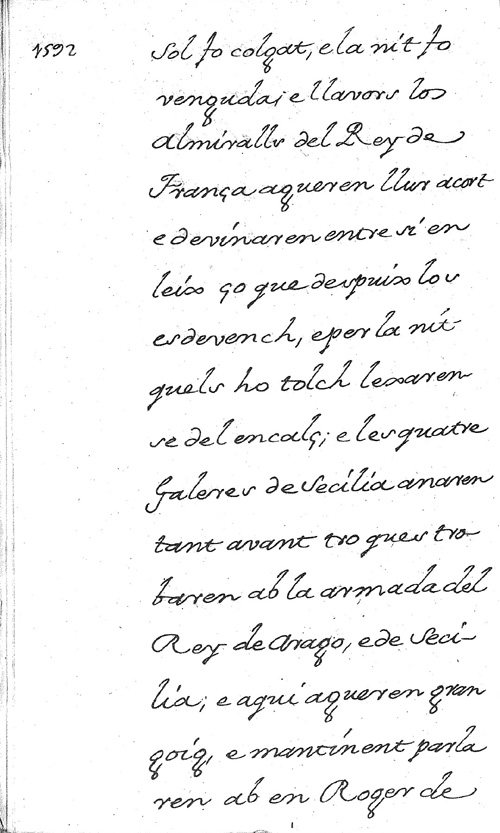 1592
sol fo colgat, e la nit fo
venguda; e llavors los
almiralls del Rey de
França agueren llur acort
e devinaren entre si en
leix ço que despuix los
esdevench, e per la nit
quels ho tolch lexaren
se del encalç; e les quatre
Galeres de Secilia anaren
tant avant tro ques tro-
baren ab la armada del
Rey de Arago, e de Seci-
lia; e aqui agueren gran
goig, e mantinent parla
ren ab en Roger de